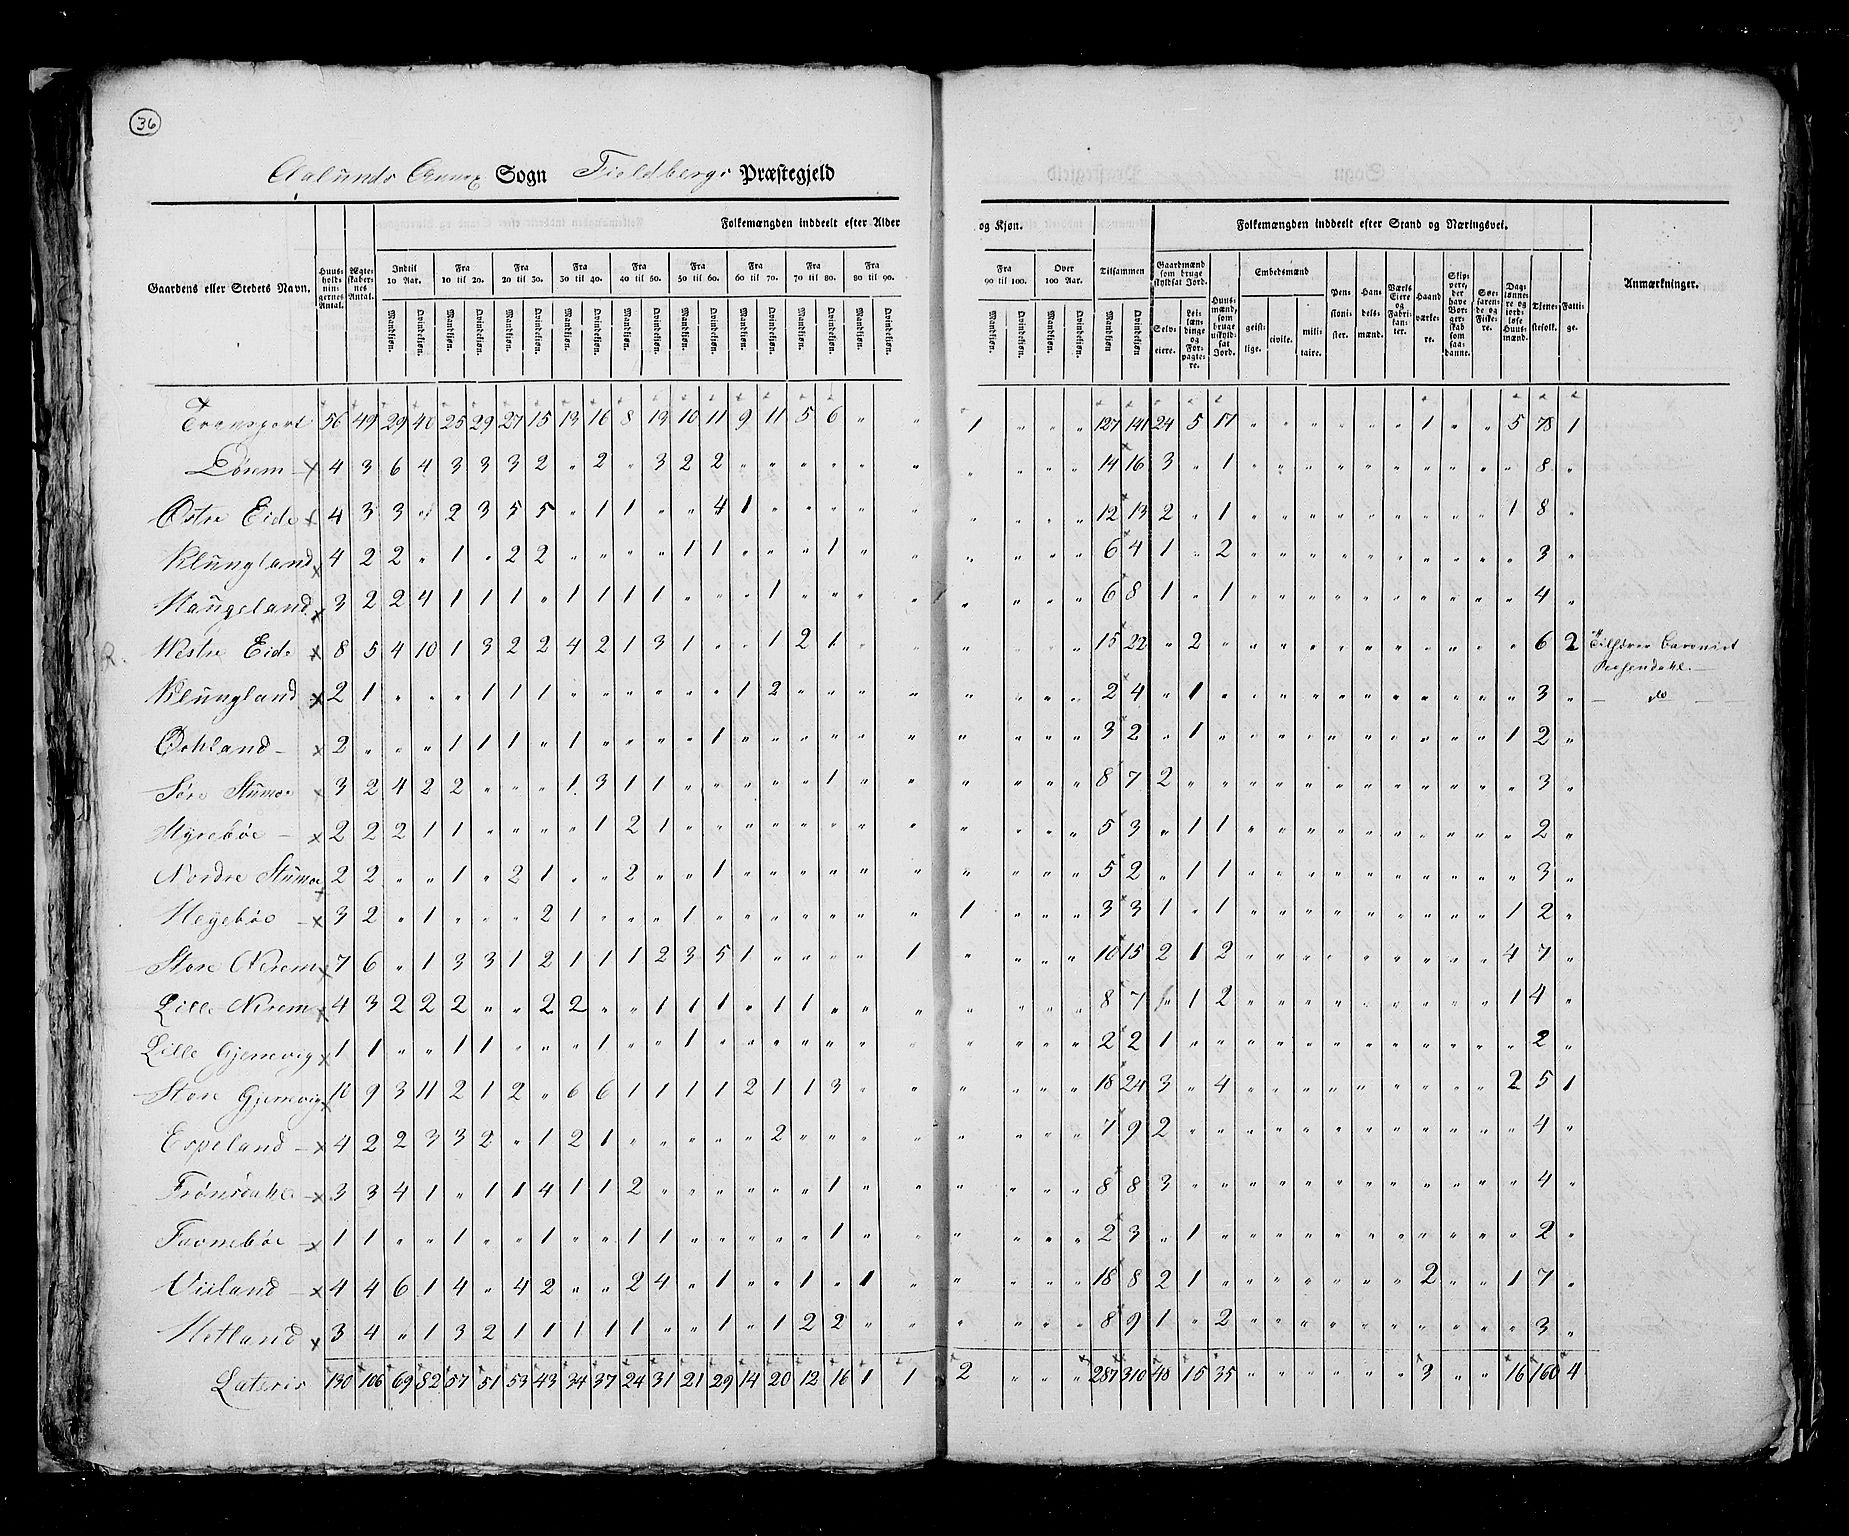 36
Aalunds Annex Sogn Fieldbergs Præstegjeld
Folkemængden inddeelt efter Alder og Kjøn.
Folkemængden inddeelt efter Stand og Næringsvei.
Gaardens eller Stedets Navn.
Huusholdningernes Antal.
Ægteskabernes Antal.
Indtil 10 Aar.
Fra 10 til 20.
Fra 20 til 30.
Fra 30 til 40.
Fra 40 til 50.
Fra 50 til 60.
Fra 60 til 70.
Fra 70 til 80.
Fra 80 til 90.
Fra 90 til 100.
Over 100 Aar.
Tilsammen
Mandkiøn. Qvindekiøn.
Gaardmænd som bruge skyldsat Jord.
Selveiere.
Leilændinge og Forpagtere.
Huusmænd, som bruge uskyldsat Jord.
Embedsmænd
geistlige. civile. militaire.
Pensionister.
Handelsmænd.
Værks Eiere og Fabrikanter.
Haandværkere.
Skippere, der have Borgerskab som saadanne.
Søefarende og Fiskere.
Daglønnere og jordløse Huusmænd.
Tienestefolk.
Fattige.
Anmærkninger.
Transport 56 49 29 40 25 29 27 15 13 16 8 13 10 11 9 11 5 6 " " 1 " " " 127 141 24 5 17 " " " " " " 1 " " 5 78 1
Lørem 4 3 6 4 3 3 3 2 " 2 " 3 2 2 " " " " " " " " " " 14 16 3 " 1 " " " " " " " " " " 8 "
Østre Eide 4 3 3 " 2 3 5 5 " 1 1 " " 4 1 " " " " " " " " " 12 13 2 " 1 " " " " " " " " " 1 8 "
Klungland 4 2 2 " 1 " 2 2 " " " " 1 1 " " " 1 " " " " " " 6 4 1 " 2 " " " " " " " " " " 3 "
Haugeland 3 2 2 4 1 1 1 " 1 1 1 1 " " " 1 " " " " " " " " 6 8 1 " 1 " " " " " " " " " " 4 "
Westre Eide 8 5 4 10 1 3 2 2 4 2 1 3 1 " " 1 2 1 " " " " " " 15 22 " 2 " " " " " " " " " " " 6 2 Tilhører Baroniet Rosendahl.
Klungland 2 1 " " " 1 1 1 " " " " " " 1 2 " " " " " " " " 2 4 " 1 " " " " " " " " " " " 3 " do
Ochland 2 " " " 1 1 1 " 1 " " " " 1 " " " " " " " " " " 3 2 " 1 " " " " " " " " " " 1 2 "
Søre Stumoe 3 2 4 2 2 " " " 1 3 1 1 " " " " " 1 " " " " " " 8 7 2 " " " " " " " " " " " " 3 "
Myrebøe 2 2 2 1 1 " " " " 1 2 1 " " " " " " " " " " " " 5 3 " 1 1 " " " " " " " " " " 2 "
Nordre Stumoe 2 2 " " 1 " 2 1 " " 2 " " 1 " " " " " " " " " " 5 2 " 1 1 " " " " " " " " " " 3 "
Hegebøe 3 2 " 1 " " " 2 1 " " " 1 " " " " " " " 1 " " " 3 3 1 " 1 " " " " " " " " " 1 2 "
Store Nerem 7 6 " 1 3 3 1 2 1 1 1 2 3 5 1 " " " " 1 " " " " 10 15 2 1 2 " " " " " " " " " 4 7 "
Lille Nerem 4 3 2 2 2 " " 2 2 " " 1 1 1 " 1 1 " " " " " " " 8 7 " 1 2 " " " " " " " " " 1 4 "
Lille Gjernevig 1 1 " " 1 1 " " " 1 " " 1 " " " " " " " " " " " 2 2 1 " " " " " " " " " " " " 2 "
Store Gjernevig 10 9 3 11 2 1 2 " 6 6 1 1 1 1 2 1 1 3 " " " " " " 18 24 3 " 4 " " " " " " " " " 2 5 1
Espeland 4 2 2 3 3 2 " 1 2 1 " " " " " 2 " " " " " " " " 7 9 2 " " " " " " " " " " " " 4 "
Frønsdahl 3 3 4 1 " 1 1 4 1 1 2 " " " " " " 1 " " " " " " 8 8 3 " " " " " " " " " " " " 4 "
Favnebøe 1 1 " " 1 " " 1 " " 1 1 " " " " " 1 " " " " " " 2 3 " 1 " " " " " " " " " " " 2 "
Viiland 4 4 6 1 4 " 4 2 " " 2 4 " 1 " " 1 " 1 " " " " " 18 8 2 1 " " " " " " " 2 " " 1 7 "
Hetland 3 4 " 1 3 2 1 1 1 1 1 " " 1 " 1 2 2 " " " " " " 8 9 1 " 2 " " " " " " " " " " 3 "
Lateris 130 106 69 82 57 51 53 43 34 37 24 31 21 29 14 20 12 16 1 1 2 " " " 287 310 48 15 35 " " " " " " 3 " " 16 160 4